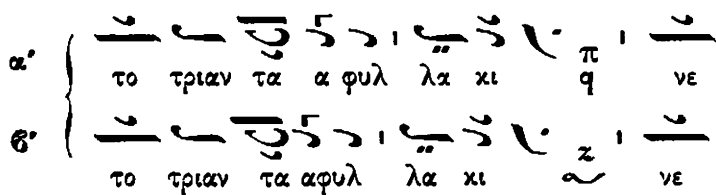 α′ το τριαν τα α φυλ λα κι π q νε
ϐ′ το τριαν τα αφυλ λα κι z νε